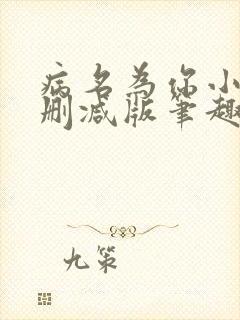 病名为你小
删减版笔趣
九策